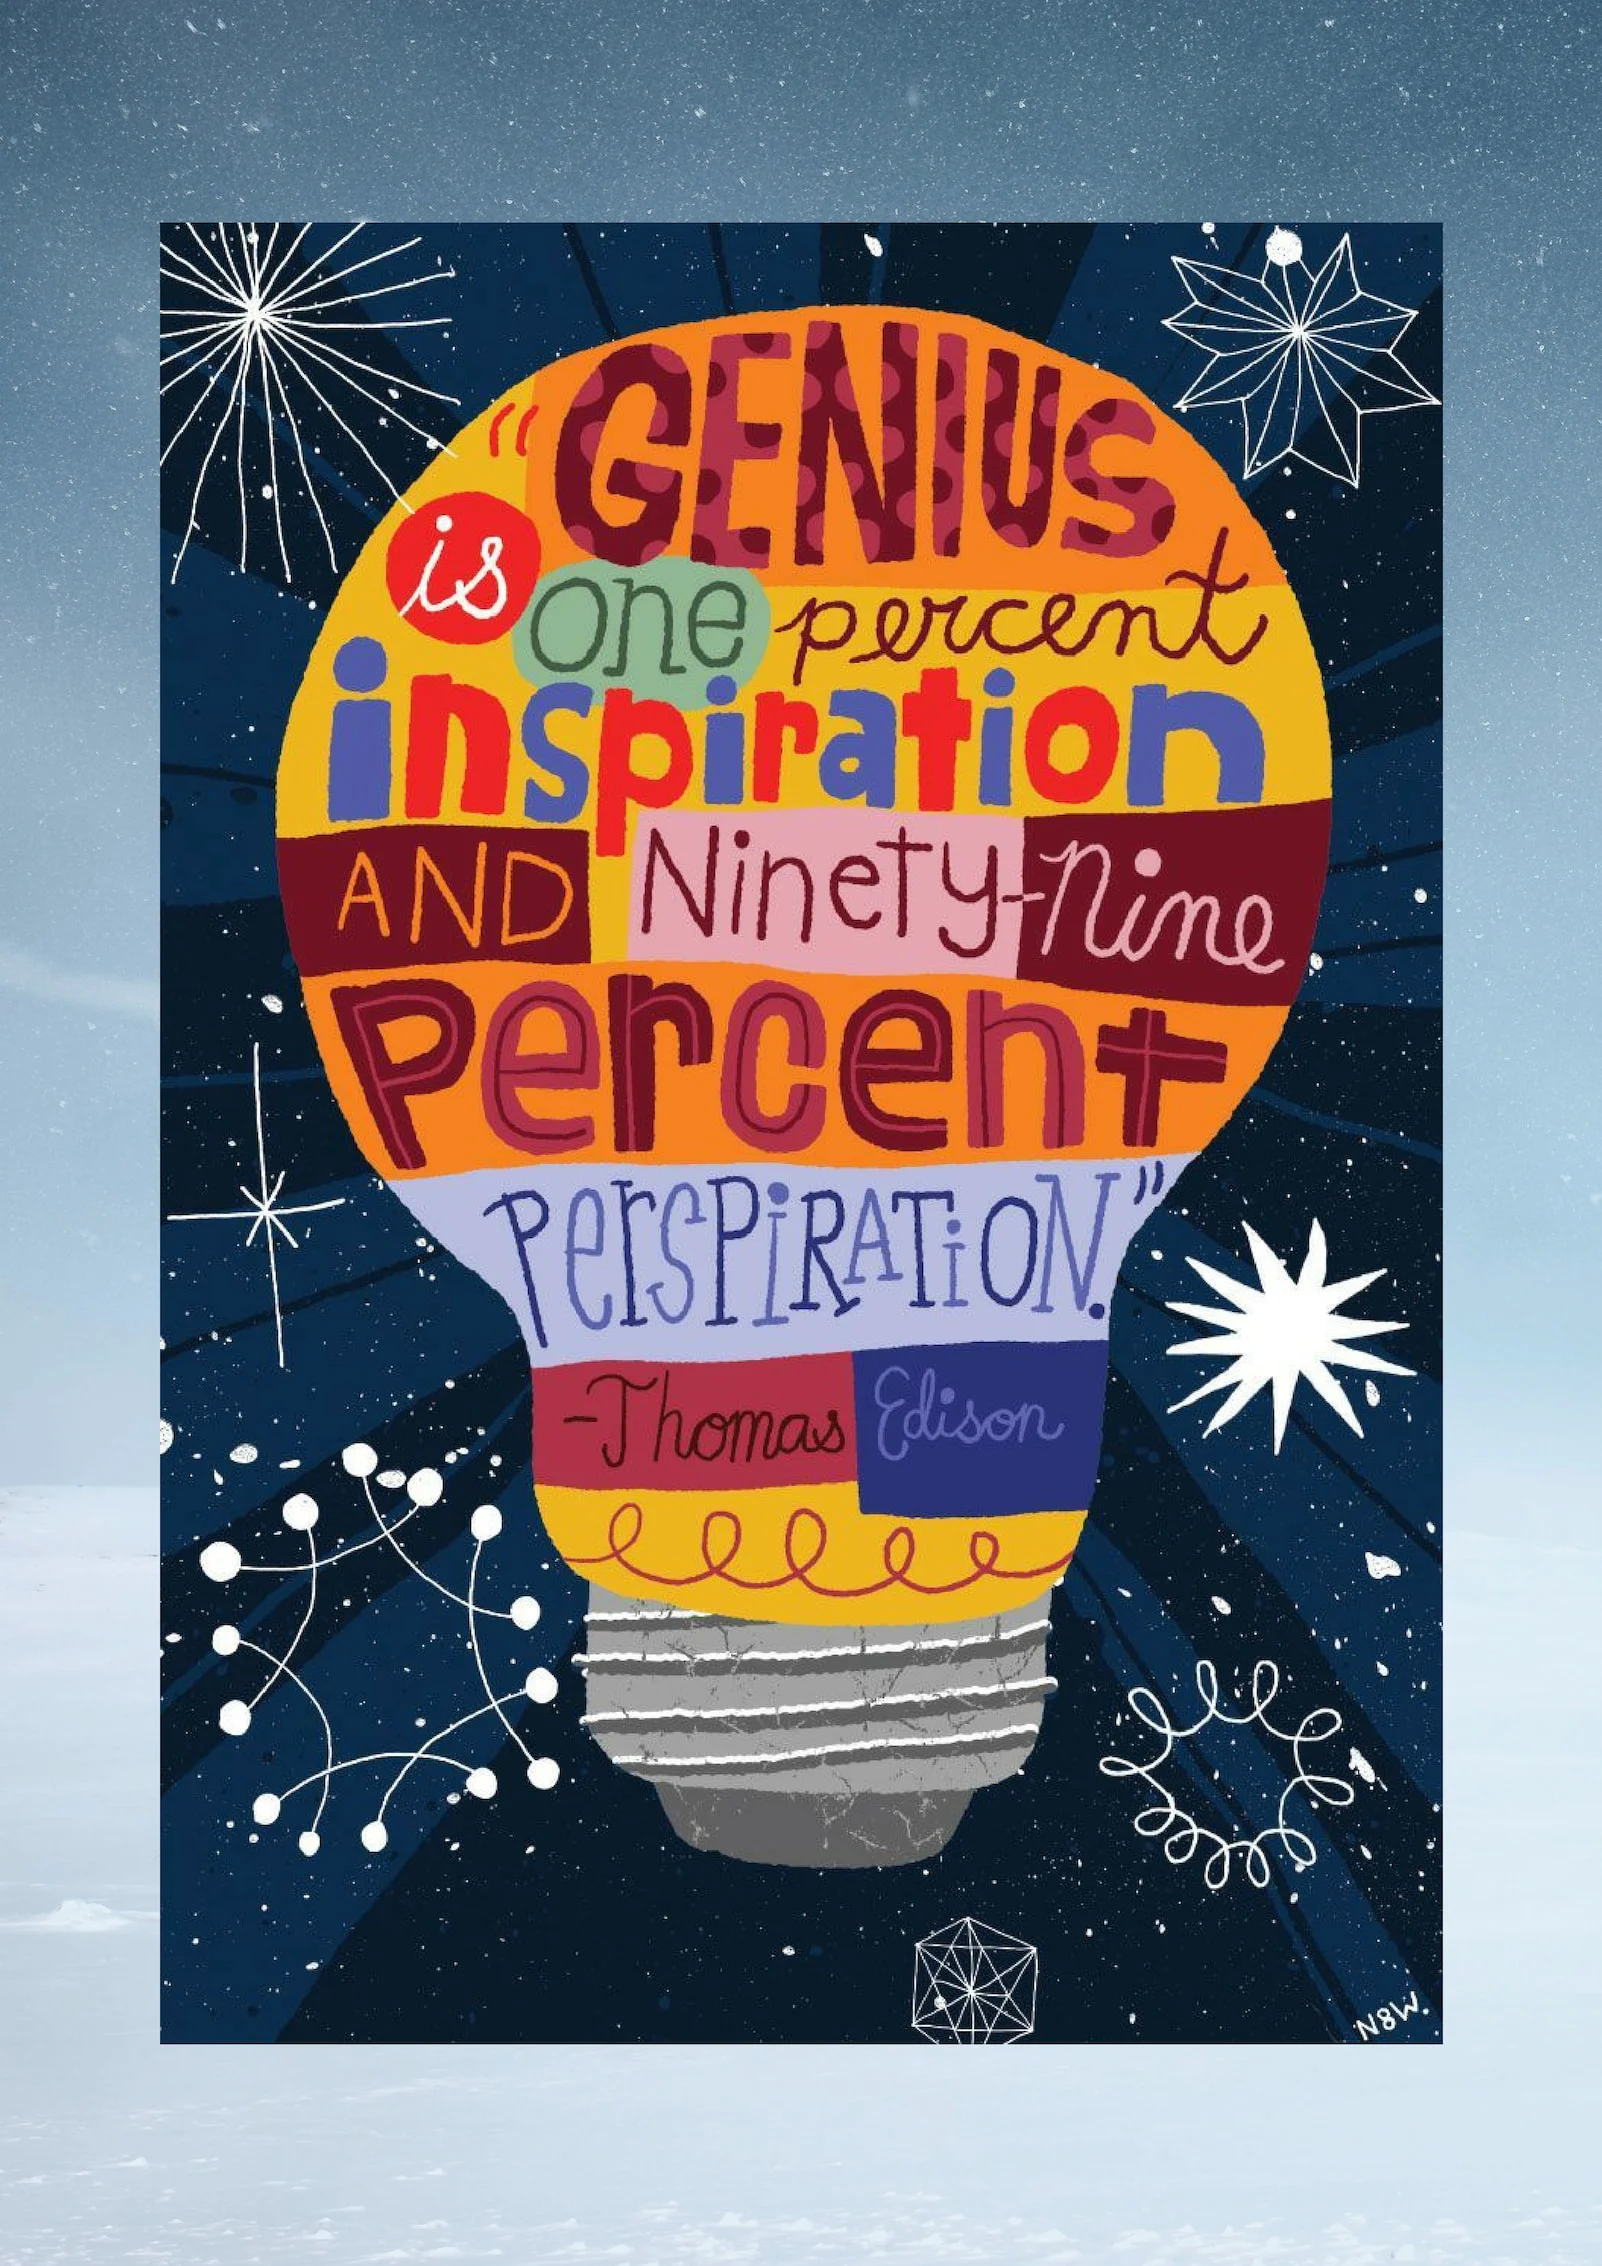 "GENIUS
is one percent
inspiration
AND Ninety-Nine
Percent
PERSPIRATION."
-Thomas Edison
N8W.